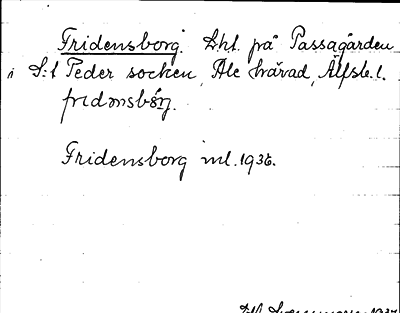 Fridensborg. Lht. på Passagården
i S:t Peder socken, Ale härad, Älfsb. l.
Fridensborg ml. 1936.